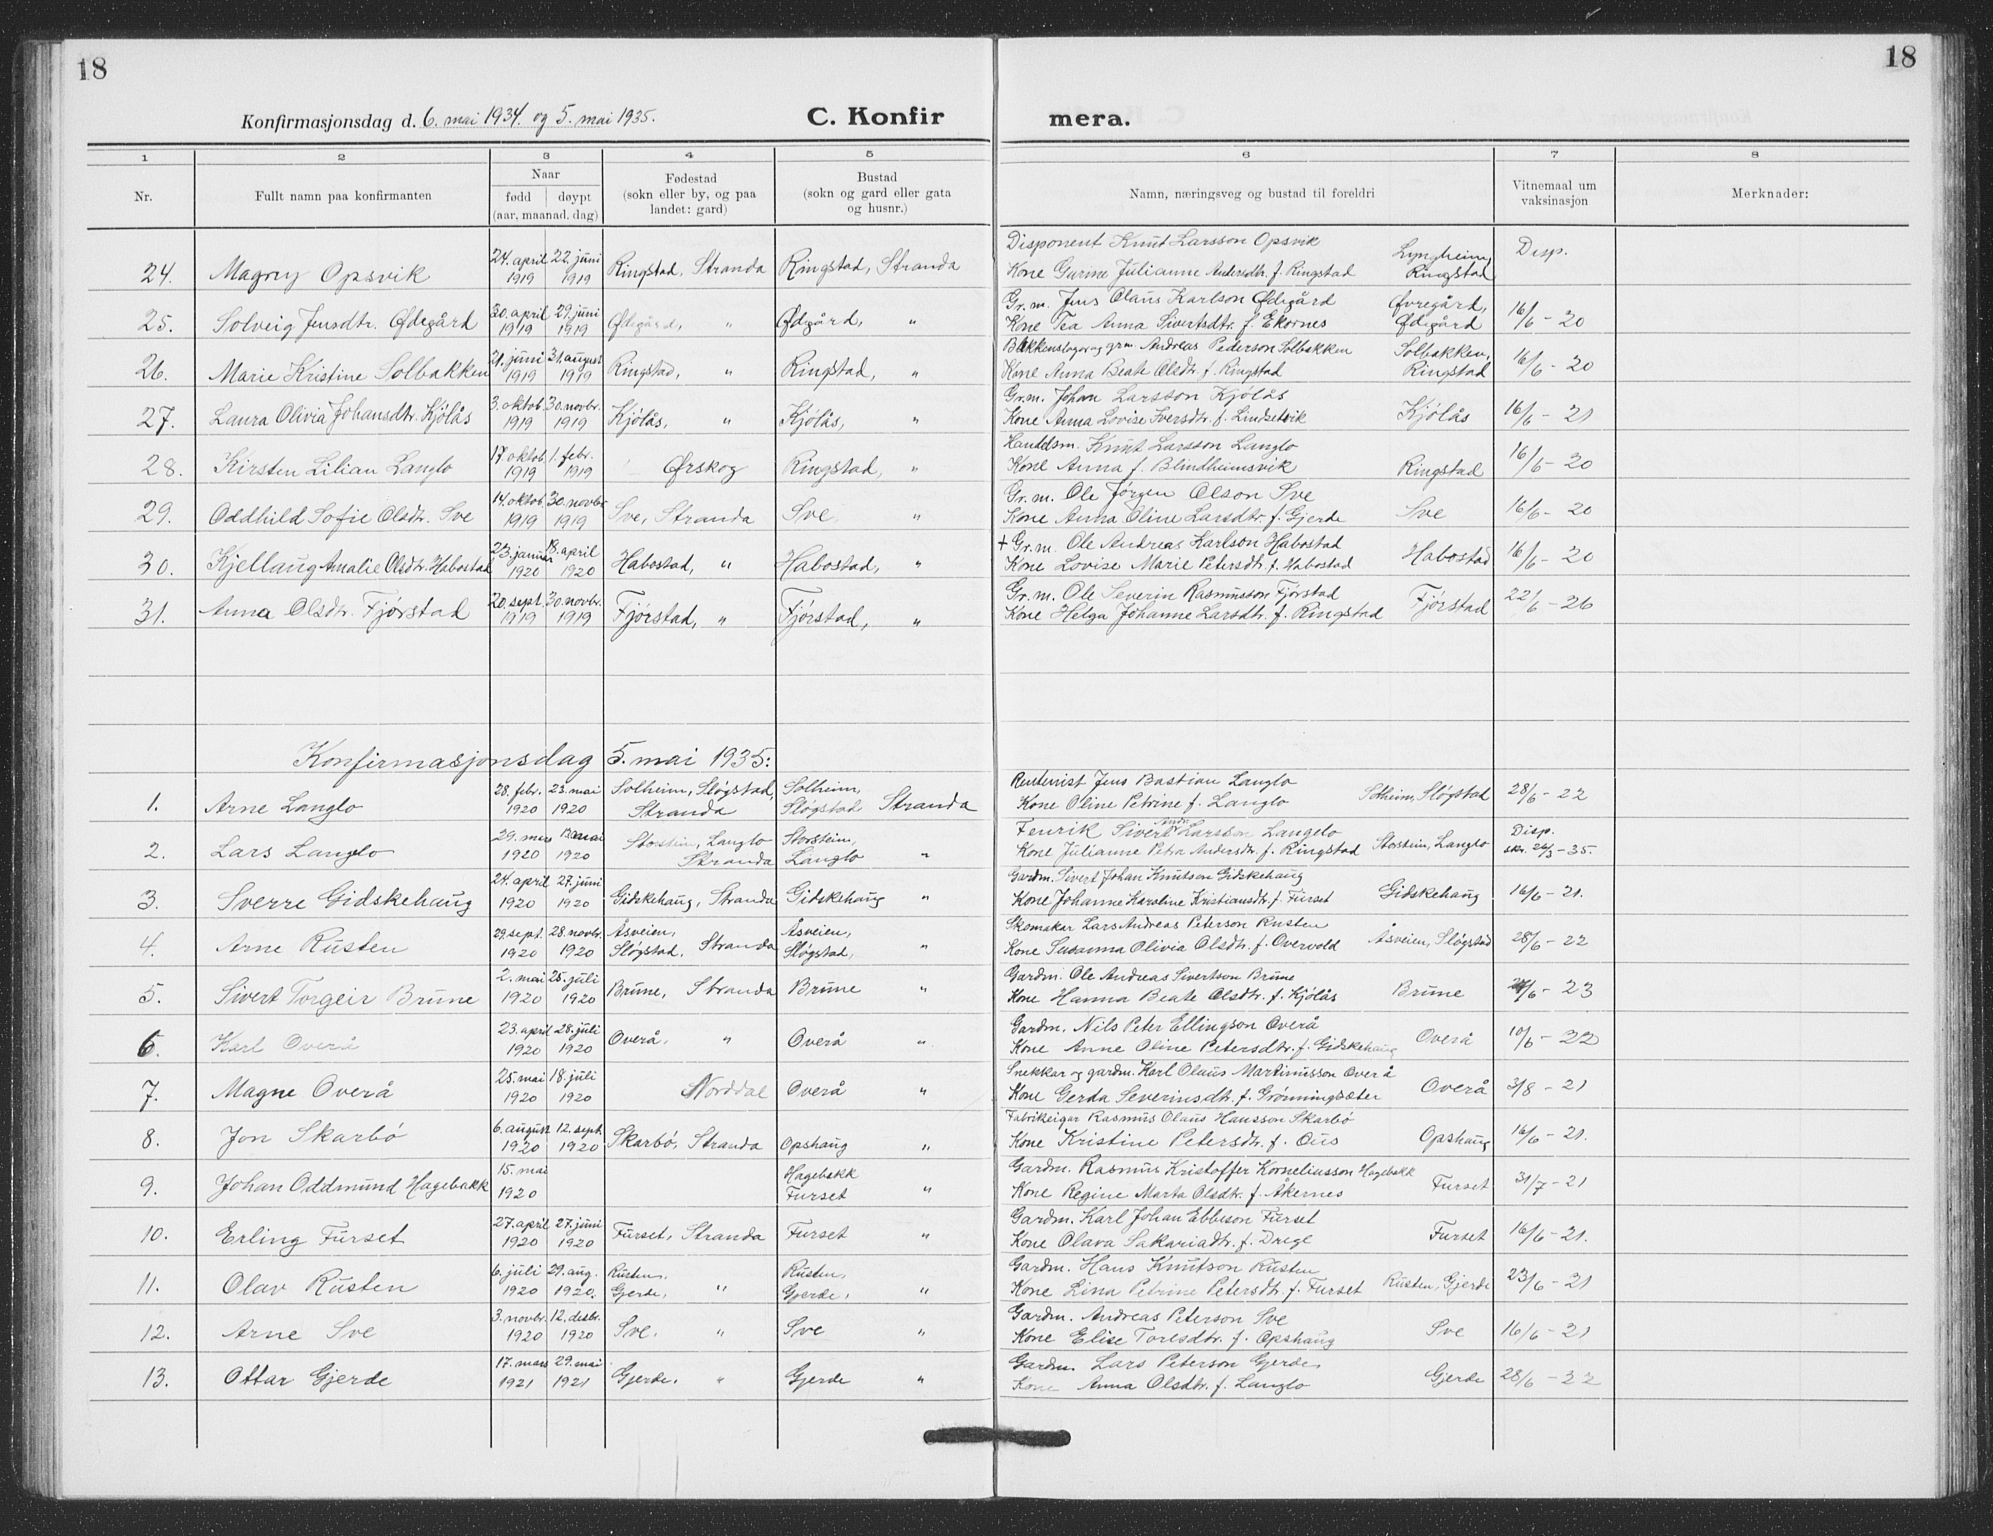 18
18
Konfirmasjonsdag d. 6. mai 1934. og 5. mai 1935.
C. Konfir
mera.
1 2 3 4 5 6 7 8
Nr. Fullt namn paa konfirmanten Naar fødd døypt (aar, maanad, dag) Fødestad (sokn eller by, og paa landet: gard) Bustad (sokn og gard eller gata og husnr.) Namn, næringsveg og bustad til foreldri Vitnemaal um vaksinasjon Merknader:
24. Magny Opsvik 24. april 1919 22. juni 1919 Ringstad, Stranda Ringstad, Stranda Disponent Knut Larsson Opsvik
Kone Gurine Julianne Andersdtr. f. Ringstad Lyngheim, Ringstad Disp.
25. Solveig Jensdtr. Ødegård 30. april 1919 29. juni 1919 Ødegård, " Ødegård, " Gr.m. Jens Olaus Karlson Ødegård
Kone Tea Anna Sivertsdtr. f. Ekornes Øvregård, Ødegård 16/6 - 20
26. Marie Kristine Solbakken 21. juni 1919 31. august 1919 Ringstad, " Ringstad, " Andreas Pederson Solbakken
Kone Anna Beate Olsdtr. f. Ringstad Solbakken, Ringstad 16/6 - 20
27. Laura Olivia Johansdtr. Kjölås 3. oktob. 1919 30. novbr. 1919 Kjölås, " Kjölås, " Gr.m. Johan Larsson Kjölås
Kone Anna Lovise Iversdtr. f. Lindsetvik Kjölås 16/6 - 21
28. Kirsten Lilian Langlo 17. oktob. 1919 1. febr. 1919 Ørskog Ringstad, " Handelsm. Knut Larsson Langlo
Kone Anna f. Blindheimsvik Ringstad 16/6 - 20
29. Oddhild Sofie Olsdtr. Sve 14. oktob. 1919 30. novbr. 1919 Sve, Stranda Sve " Gr.m. Ole Jørgen Olson Sve
Kone Anna Oline Larsdtr. f. Gjerde Sve 16/6 - 20
30. Kjellaug Amalie Olsdtr. Habostad 23. januar 1920 18. april 1920 Habostad, " Habostad, " + Gr.m. Ole Andreas Karlson Habostad
Kone Lovise Marie Petersdtr. f. Habostad Habostad 16/6 - 20
31. Anna Olsdtr. Fjörstad 20. sept. 1919 30. novbr. 1919 Fjörstad, " Fjörstad, " Gr.m. Ole Severin Rasmusson Fjörstad
Kone Helga Johanne Larsdtr. f. Ringstad Fjörstad 22/6 - 26
Konfirmasjonsdag 5. mai 1935:
1. Arne Langlo 28. febr. 1920 23. mai 1920 Solheim, Slögstad, Stranda Solheim, Slögstad Stranda Rentenist Jens Bastian Langlo
Kone Oline Petrine f. Langlo Solheim, Slögstad 28/6 - 22
2. Lars Langlo 29. mars 1920 13. mai 1920 Storstein, Langlo Stranda Storstein, Langlo " Fenrik Sivert Andr. Larsson Langelo
Kone Julianne Petra Andersdtr. f. Ringstad Storstein, Langlo Disp. skr. 26/3 - 35.
3. Sverre Gidskehaug 24. april 1920 27. juni 1920 Gidskehaug, Stranda Gidskehaug " Gardm. Sivert Johan Knutson Gidskehaug
Kone Johanne Karoline Kristiansdtr. f. Furset Gidskehaug 16/6 - 21.
4. Arne Rusten 29. sept. 1920 28. novbr. 1920 Åsveien, Slögstad, Stranda Åsveien, Slögstad, " Skomakar Lars Andreas Peterson Rusten
Kone Susanna Olivia Olsdtr. f. Overvold Åsveien, Slögstad 28/6 - 22
5. Sivert Torgeir Brune 2. mai 1920 25. juli 1920 Brune, Stranda Brune " Gardm. Ole Andreas Sivertson Brune
Kone Hanna Beate Olsdtr. f. Kjölås Brune /6 - 23
6. Karl Overå 23. april 1920 28. juli 1920 Overå, " Overå " Gardm. Nils Peter Ellingson Overå
Kone Anne Oline Petersdtr. f. Gidskehaug Overå 10/6 - 22
7. Magne Overå 25. mai 1920 18. juli 1920 Norddal Overå " Snekkar og gardm. Karl Olaus Martinusson Overå
Kone Gerda Severinsdtr. f. Grönningsæter Overå 3/8 - 21
8. Jon Skarbö 6. august 1920 12. sept. 1920 Skarbö, Stranda Opshaug " Fabrikeigar Rasmus Olaus Hansson Skarbö
Kone Kristine Petersdtr. f. Ous Opshaug 16/6 - 21.
9. Johan Oddmund Hagebakk 15. mai 1920 Hagebakk Furset " Gardm. Rasmus Kristoffer Korneliusson Hagebakk
Kone Regine Marta Olsdtr. f. Åkernes Furset 31/7 - 21
10. Erling Furset 27. april 1920 27. juni 1920 Furset, Stranda Furset " Gardm. Karl Johan Ebbeson Furset
Kone Olava Sakariasdtr. f. Drege Furset 16/6 - 21.
11. Olav Rusten 6. juli 1920 29. aug. 1920. Rusten, Gjerde, " Rusten, Gjerde, " Gardm. Hans Knutson Rusten
Kone Lina Petrine Petersdtr. f. Furset Rusten, Gjerde 23/6 - 21
12. Arne Sve 3. novbr. 1920 12. desbr. 1920 Sve, " Sve " Gardm. Andreas Peterson Sve
Kone Elise Toresdtr. f. Opshaug Sve 16/6 - 21
13. Ottar Gjerde 17. mars 1921 29. mai 1921 Gjerde, " Gjerde " Gardm. Lars Peterson Gjerde,
Kone Anna Olsdtr. f. Langlo Gjerde 28/6 - 22